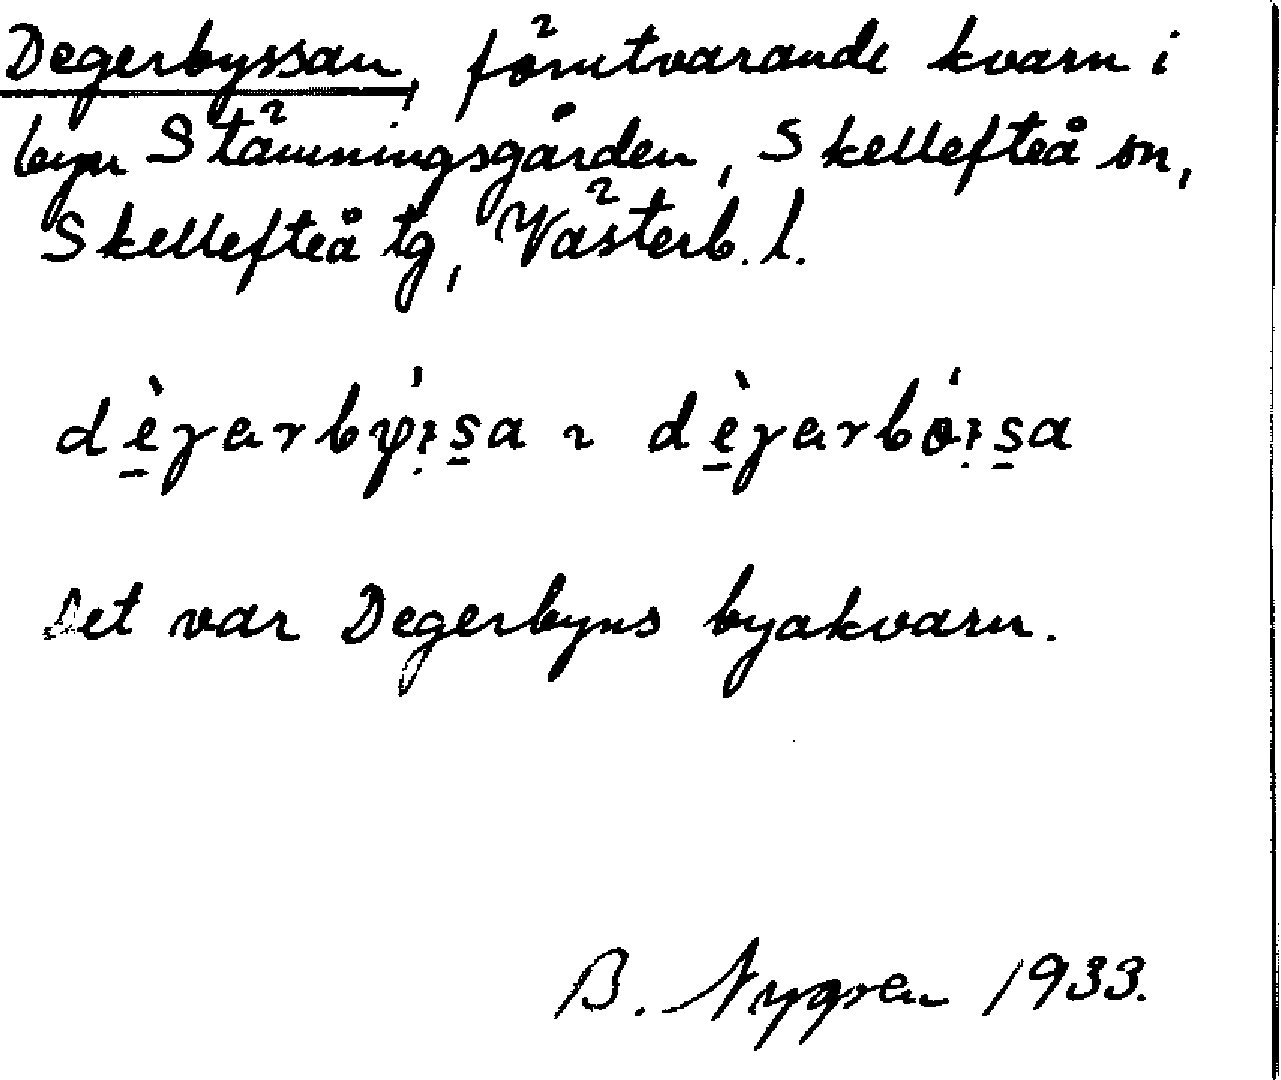 Degerbyssan, förutvarande kvarn i
byn Stämningsgården, Skellefteå sn,
Skellefteå tg, Västerb. l.
Det var Degerbyns byakvarn.
B. Nygren 1933.